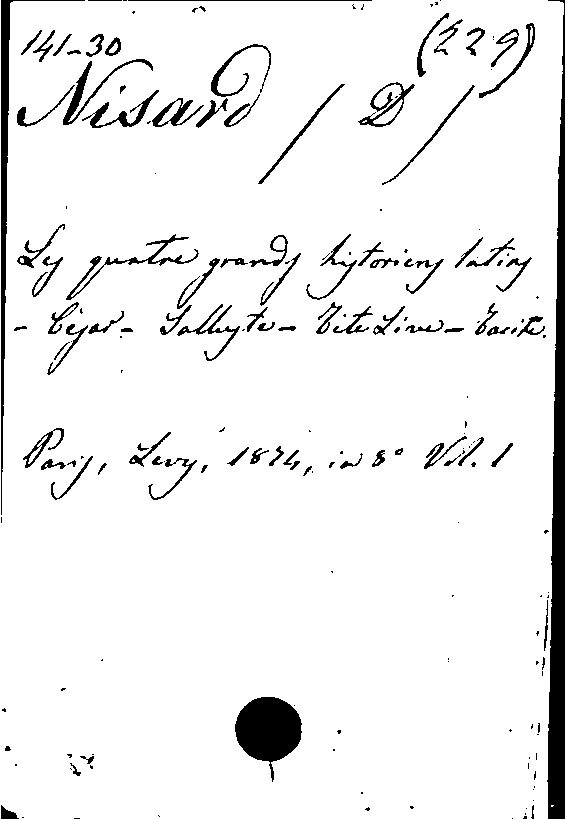 141-30 (229)
Nisard / D /
Les quatre grands historiens latins
- César - Salluste - Tite Live - Tacite.
Paris, Levy, 1874, in 8° Vol. 1